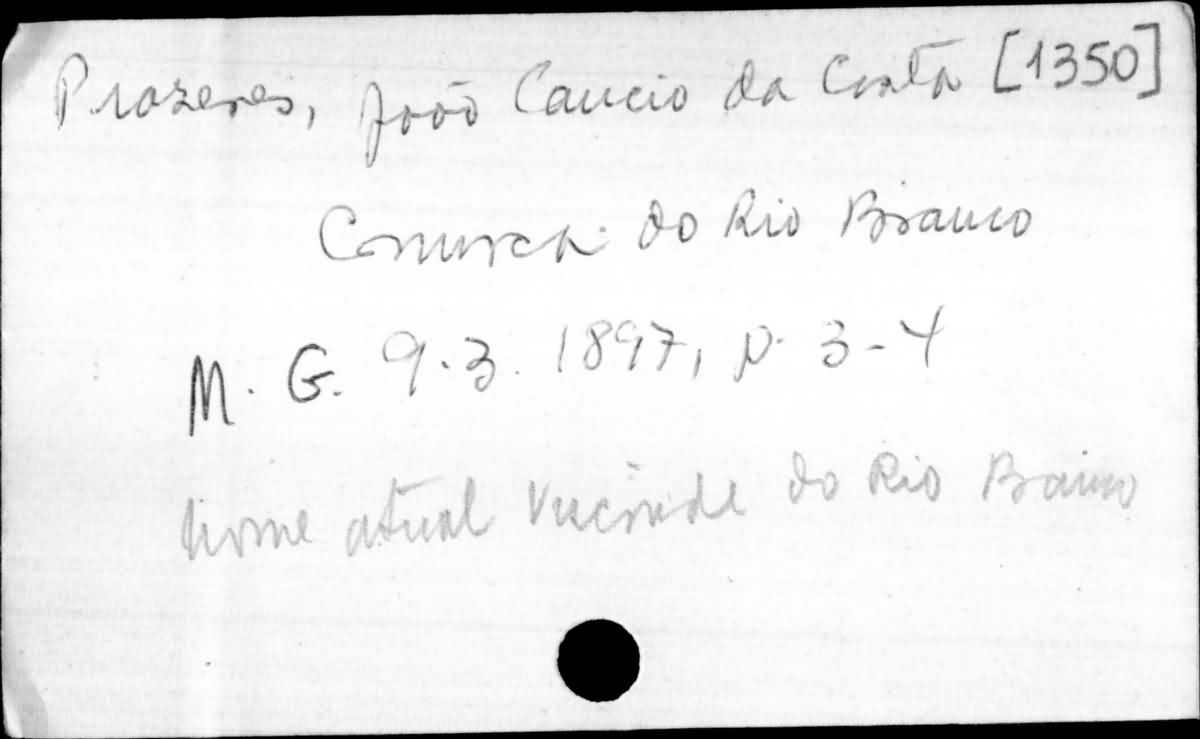 Prazeres, João Cancio da Costa [1350]
Comarca do Rio Branco
M. G. 9.3.1897, p. 3-4
Nome atual Visconde do Rio Branco